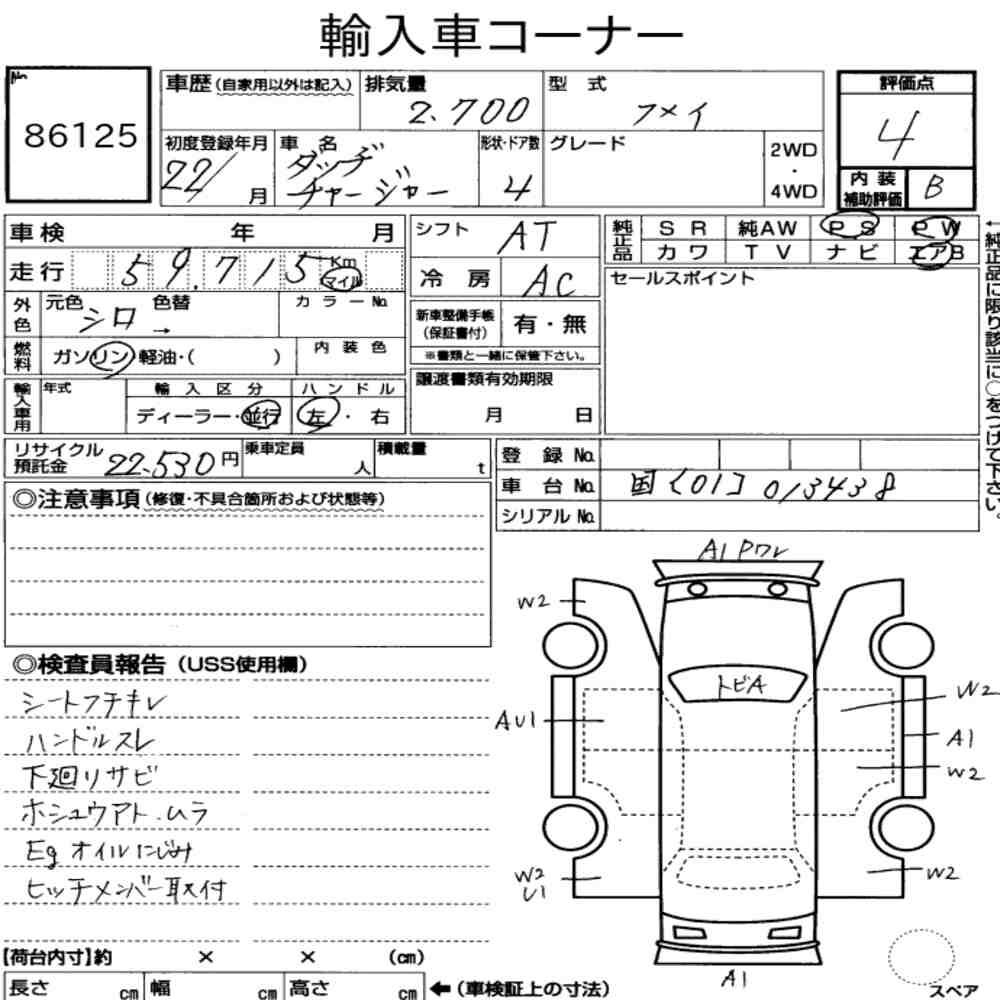 輸入車コーナー
No.
86125
車歴(自家用以外は記入)
排気量
2.700
型 式
フメイ
評価点
4
初度登録年月
22/ 月
車 名
ダッヂ
チャージャー
形状・ドア数
4
グレード
2WD
・
4WD
内 装
補助評価
B
車検 年 月
走行 59.715 Km マイル
外色
元色 シロ
色替 →
カラーNo.
燃料
ガソリン・軽油・( )
内 装 色
輸入車用
年式
輸 入 区 分
ディーラー・並行
ハ ン ド ル
左・右
シフト AT
冷 房 AC
新車整備手帳
(保証書付)
有・無
※書類と一緒に保管下さい。
譲渡書類有効期限
月 日
純正品
S R 純AW P S P W
カワ T V ナビ エアB
セールスポイント
←純正品に限り該当に○をつけて下さい。
リサイクル
預託金
22.530 円
乗車定員
人
積載量
t
登 録 No.
車 台 No. 国〔01〕013438
シリアル No.
◎注意事項(修復・不具合箇所および状態等)
◎検査員報告(USS使用欄)
シートフチキレ
ハンドルスレ
下廻リサビ
ホシュウアト.ムラ
Eg オイルにじみ
ヒッチメンバー取付
A1 Pワレ
W2
トビA
AU1
W2
A1
W2
W2
U1
W2
A1
スペア
【荷台内寸】約 × × (cm)
長さ cm 幅 cm 高さ cm ←(車検証上の寸法)